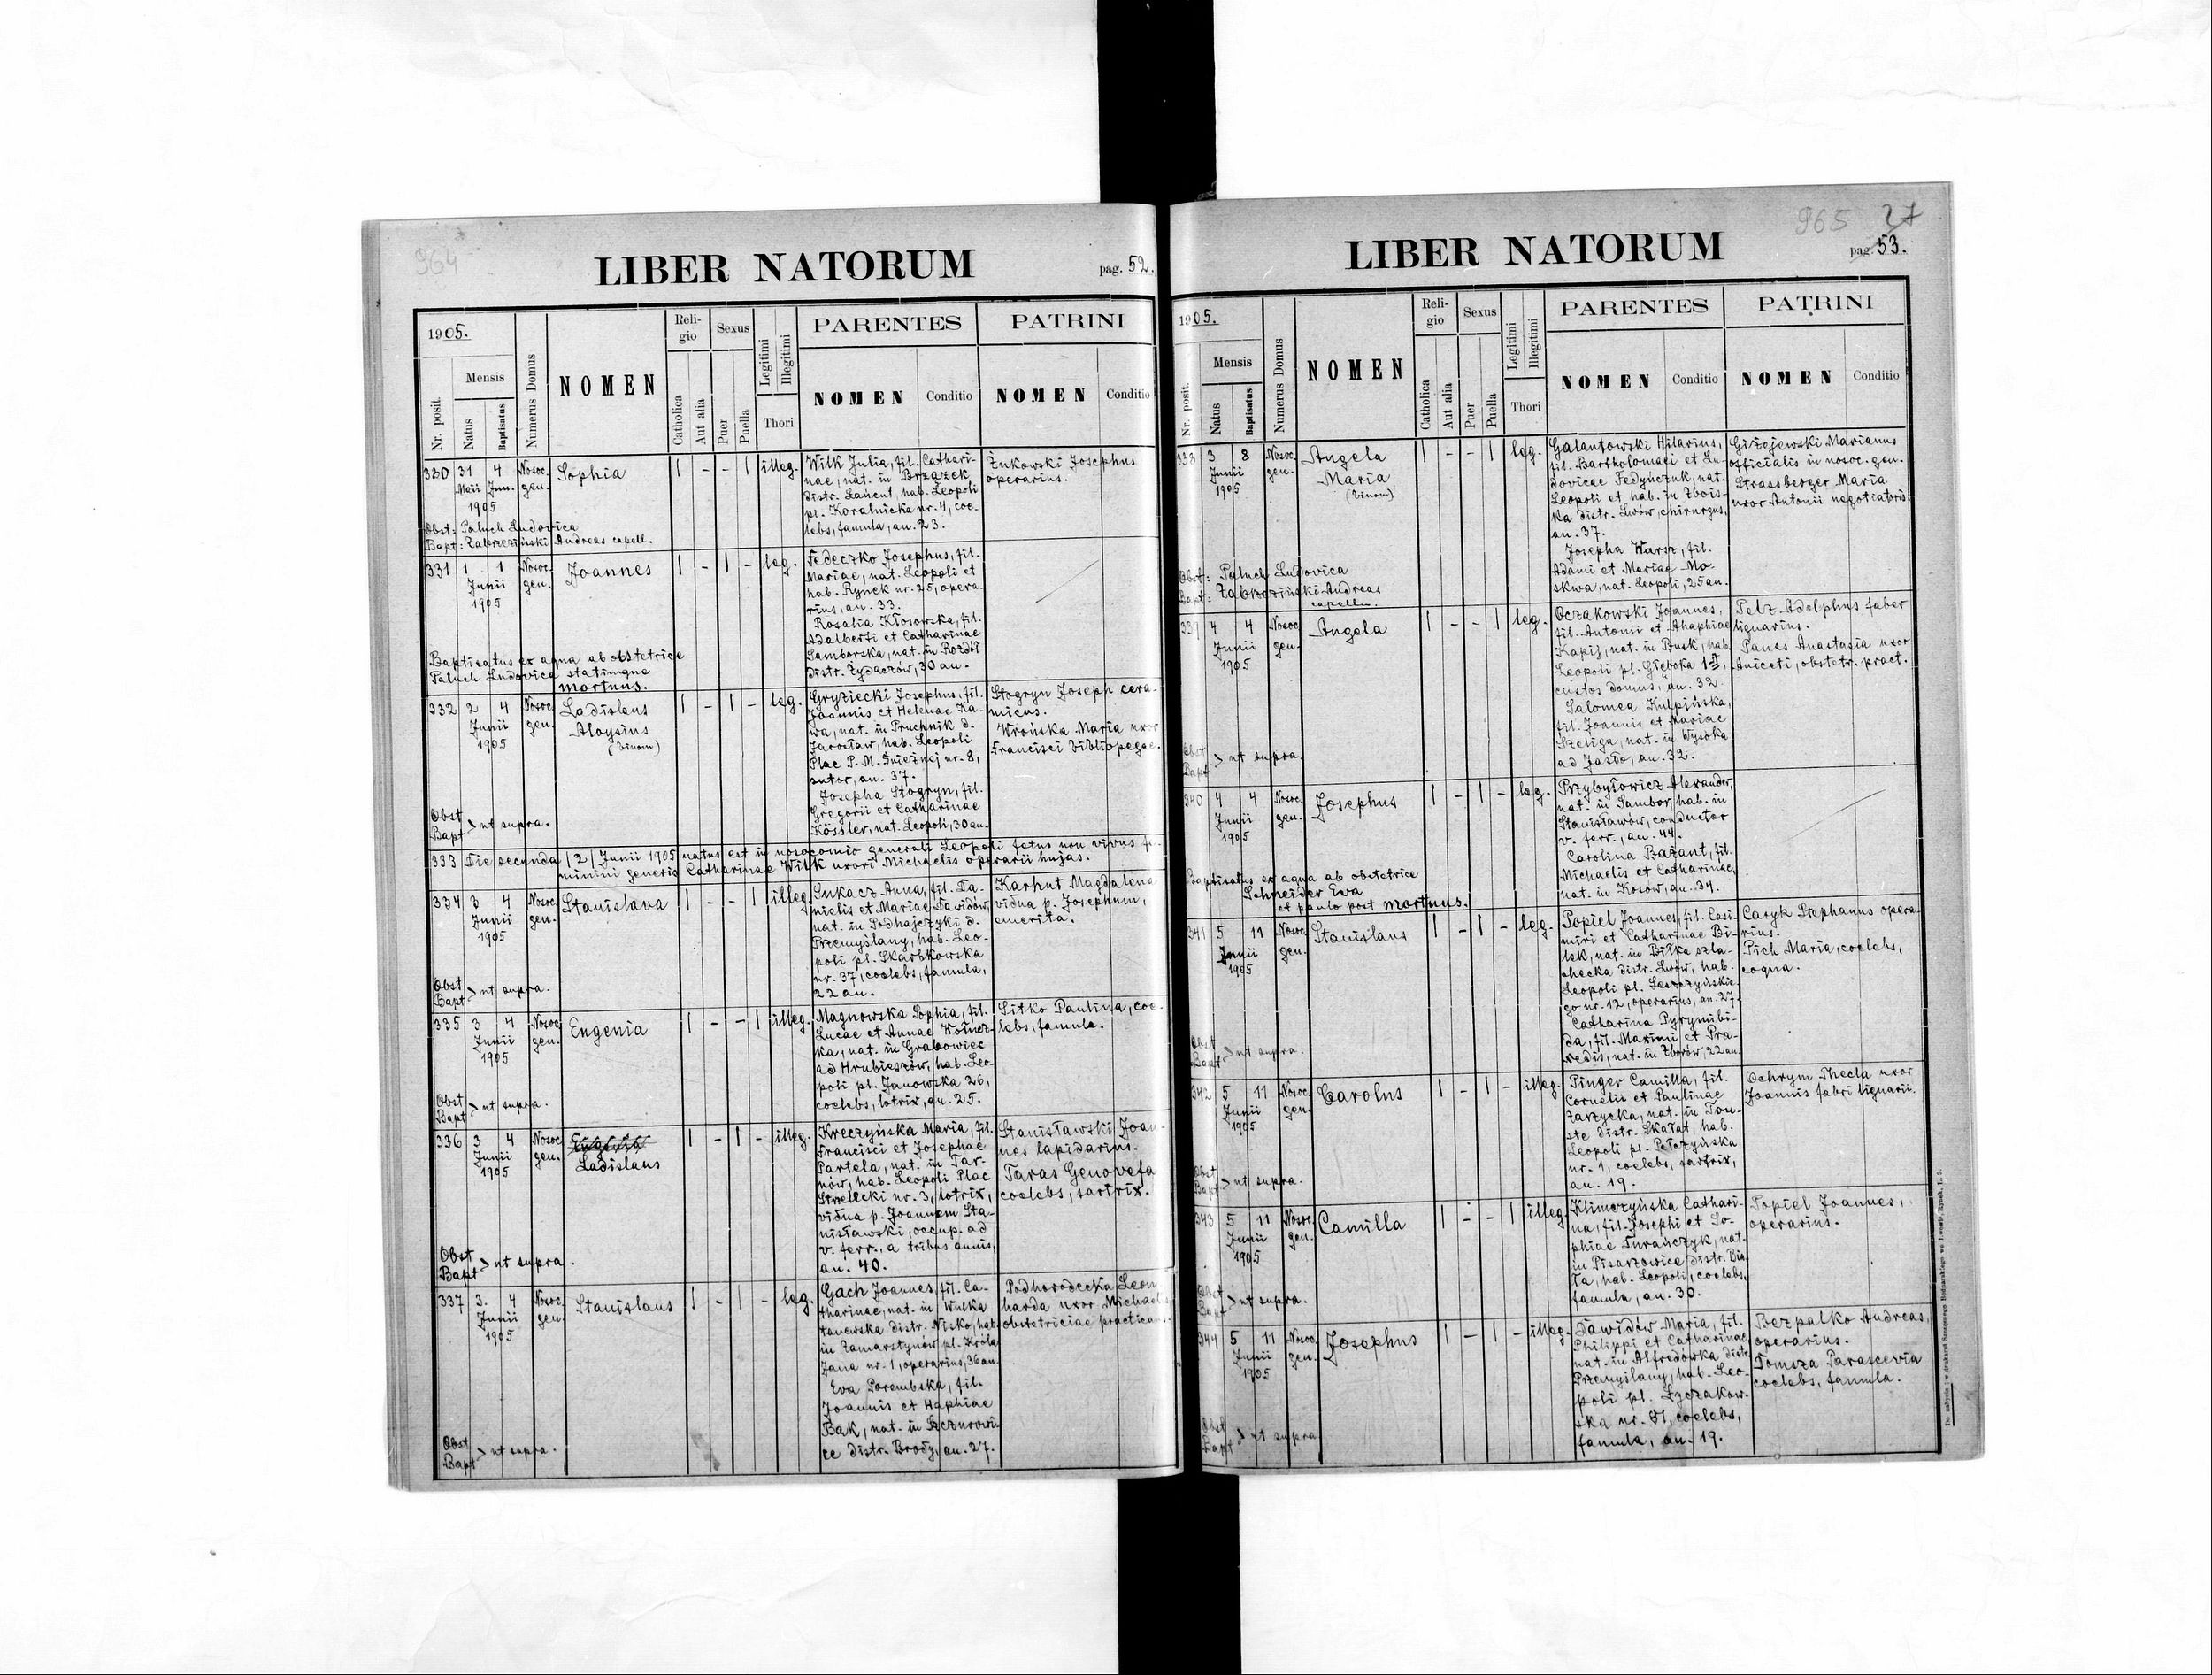 964
LIBER NATORUM
pag. 52.
1905.
Nr. posit.
Mensis
Natus
Baptisatus
Numerus Domus
NOMEN
Religio
Catholica
Aut alia
Sexus
Puer
Puella
Legitimi
Illegitimi
Thori
PARENTES
NOMEN
Conditio
PATRINI
NOMEN
Conditio
330 31 4 Nosoc. Sophia 1 - - 1 illeg.
Maii Jun. gen.
1905
Wilk Julia, fil. Cathari-
nae, nat. in Brzazek
distr. Łańcut, hab. Leopoli
pl. Koralnicka nr. 4, coe-
lebs, famula, an. 23.
Żukowski Josephus
operarius.
Obst: Paluch Ludovica
Bapt: Zabrzeziński Andreas capell.
331 1 1 Nosoc. Joannes 1 - 1 - leg.
Junii gen.
1905
Fedeczko Josephus, fil.
Mariae, nat. Leopoli et
hab. Rynek nr. 25, opera-
rius, an. 33.
Rosalia Kłosowska, fil.
Adalberti et Catharinae
Samborska, nat. in Rozdół
distr. Żydaczów, 30 an.
Baptisatus ex aqua ab obstetrice
Paluch Ludovica statimque
mortuus.
332 2 4 Nosoc. Ladislaus 1 - 1 - leg.
Junii gen. Aloysius
1905 (binom)
Gryziecki Josephus, fil.
Joannis et Helenae Ka-
wa, nat. in Pruchnik d.
Jarosław, hab. Leopoli
Plac P. M. Śnieżnej nr. 8,
sutor, an. 37.
Josepha Stogryn, fil.
Gregorii et Catharinae
Kössler, nat. Leopoli, 30 an.
Stogryn Joseph cera-
micus.
Wrońska Maria uxor
Francisci bibliopegae.
Obst
Bapt > ut supra.
333 Die secunda /2/ Junii 1905 natus est in nosocomio generali Leopoli fetus non vivus fe-
minini generis Catharinae Wilk uxori Michaelis operarii hujas.
334 3 4 Nosoc. Stanislava 1 - - 1 illeg.
Junii gen.
1905
Łukacz Anna, fil. Da-
nielis et Mariae Dawidów,
nat. in Podhajczyki d.
Przemyślany, hab. Leo-
poli pl. Skarbkowska
nr. 37, coelebs, famula,
22 an.
Karhut Magdalena
vidua p. Josephum,
emerita.
Obst
Bapt > ut supra.
335 3 4 Nosoc. Eugenia 1 - - 1 illeg.
Junii gen.
1905
Magnowska Sophia, fil.
Lucae et Annae
ka, nat. in Grabowiec
ad Hrubieszów, hab. Leo-
poli pl. Janowska 26,
coelebs, lotrix, an. 25.
Sitko Paulina, coe-
lebs, famula.
Obst
Bapt > ut supra.
336 3 4 Nosoc. Ladislaus 1 - 1 - illeg.
Junii gen.
1905
Kreczyńska Maria, fil.
Francisci et Josephae
Partela, nat. in Tar-
nów, hab. Leopoli Plac
Strzelecki nr. 3, lotrix,
vidua p. Joannem Sta-
nisławski, occup. ad
v. ferr., a tribus annis,
an. 40.
Stanisławski Joan-
nes lapidarius.
Taras Genovefa
coelebs, sartrix.
Obst
Bapt > ut supra.
337 3. 4 Nosoc. Stanislaus 1 - 1 - leg.
Junii gen.
1905
Gach Joannes, fil. Ca-
tharinae, nat. in Wulka
tanewska distr. Nisko, hab.
in Zamarstynów pl. Króla
Jana nr. 1, operarius, 36 an.
Eva Porembska, fil.
Joannis et Haphiae
Bak, nat. in Szczurowi-
ce distr. Brody, an. 27.
Podhorodecka Leon
harda uxor Michaels
obstetriciae practican.
Obst
Bapt > ut supra.
965 27
LIBER NATORUM
pag. 53.
1905.
Nr. posit.
Mensis
Natus
Baptisatus
Numerus Domus
NOMEN
Religio
Catholica
Aut alia
Sexus
Puer
Puella
Legitimi
Illegitimi
Thori
PARENTES
NOMEN
Conditio
PATRINI
NOMEN
Conditio
338 3 8 Nosoc. Angela 1 - - 1 leg.
Junii gen. Maria
1905 (binom)
Galantowski Hilarius,
fil. Bartholomaei et Lu-
dovicae Fedyńczuk, nat.
Leopoli et hab. in Zbois-
ka distr. Lwów, chirurgus,
an. 37.
Josepha Warsz, fil.
Adami et Mariae Mo-
skwa, nat. Leopoli, 25 an.
Giżejewski Marianus
officialis in nosoc. gen.
Strassberger Maria
uxor Antonii negotiatoris.
Obst: Paluch Ludovica
Bapt: Zabrzeziński Andreas
capellan.
339 4 4 Nosoc. Angela 1 - - 1 leg.
Junii gen.
1905
Oczakowski Joannes,
fil. Antonii et Ahaphiae
Kapij, nat. in Busk, hab.
Leopoli pl. Głęboka 1 II,
custos domus, an. 32.
Salomea Kulpińska,
fil. Joannis et Mariae
Szeliga, nat. in Wysoka
ad Jasło, an. 32.
Pelz Adolphus faber
lignarius.
Panas Anastasia uxor
Aniceti, obstetr. pract.
Obst
Bapt > ut supra.
340 4 4 Nosoc. Josephus 1 - 1 - leg.
Junii gen.
1905
Przybyłowicz Alexander,
nat. in Sambor, hab. in
Stanisławów, conductor
v. ferr., an. 44.
Carolina Bażant, fil.
Michaelis et Catharinae,
nat. in Kosów, an. 34.
Baptisatus ex aqua ab obstetrice
Schneider Eva
et paulo post mortuus.
341 5 11 Nosoc. Stanislaus 1 - 1 - leg.
Junii gen.
1905
Popiel Joannes, fil. Casi-
miri et Catharinae Bi-
lek, nat. in Biłka szla-
checka distr. Lwów, hab.
Leopoli pl. Leszczyńskie-
go nr. 12, operarius, an. 27.
Catharina Pyrynibi-
da, fil. Maximi et Pra-
xedis, nat. in Zborów, 22 an.
Caryk Stephanus opera-
rius.
Pich Maria, coelebs,
coqua.
Obst
Bapt > ut supra.
342 5 11 Nosoc. Carolus 1 - 1 - illeg.
Junii gen.
1905
Pinger Camilla, fil.
Cornelii et Paulinae
Zarzycka, nat. in Tou-
ste distr. Skałat, hab.
Leopoli pl. Pełczyńska
nr. 1, coelebs, sartrix,
an. 19.
Ochrym Thecla uxor
Joannis fabri lignarii.
Obst
Bapt > ut supra.
343 5 11 Nosoc. Camilla 1 - - 1 illeg.
Junii gen.
1905
Klimczyńska Cathari-
na, fil. Josephi et So-
phiae Turańczyk, nat.
in Pisarzowice distr. Bia-
ła, hab. Leopoli, coelebs,
famula, an. 30.
Popiel Joannes,
operarius.
Obst
Bapt > ut supra.
344 5 11 Nosoc. Josephus 1 - 1 - illeg.
Junii gen.
1905
Dawidów Maria, fil.
Philippi et Catharinae
nat. in Alfredówka distr.
Przemyślany, hab. Leo-
poli pl. Łyczakow-
ska nr. 81, coelebs,
famula, an. 19.
Bezpalko Andreas,
operarius.
Tomsza Parascevia
coelebs, famula.
Obst
Bapt > ut supra